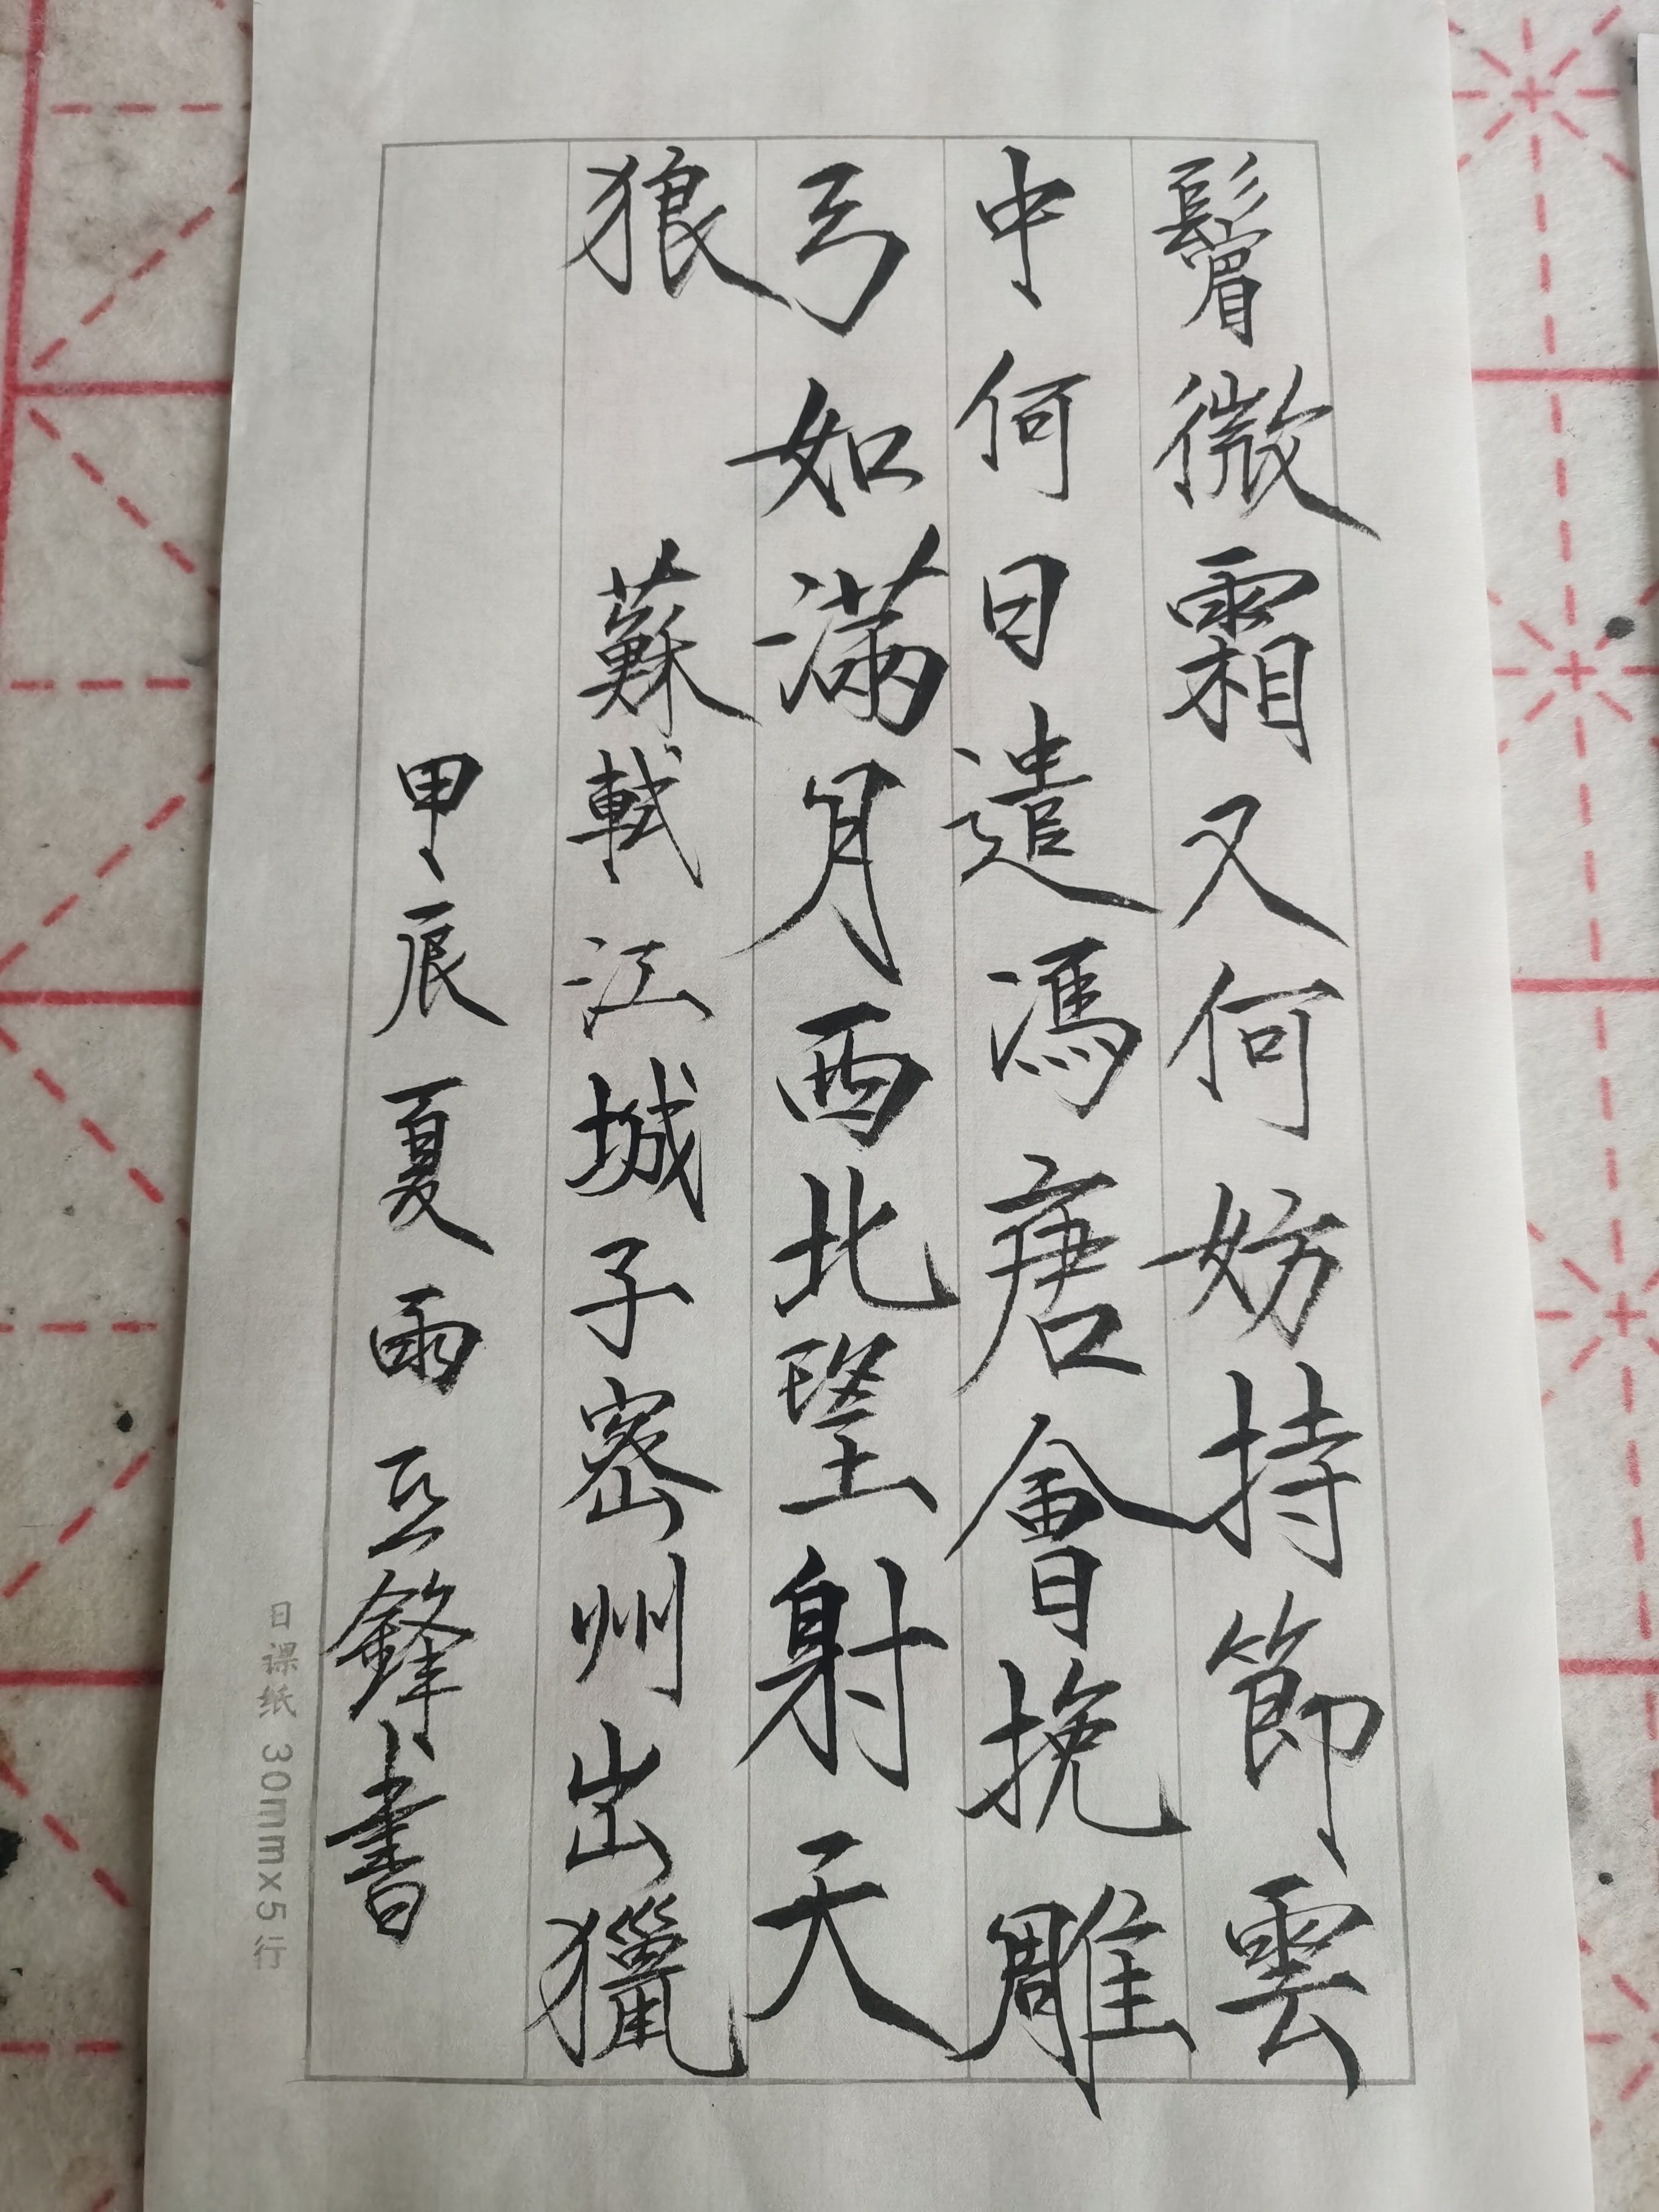 鬢微霜又何妨持節雲
中何日遣馮唐會挽雕
弓如滿月西北望射天
狼 蘇軾江城子密州出獵
甲辰夏雨豆鋒書
日课纸 30mmx5行